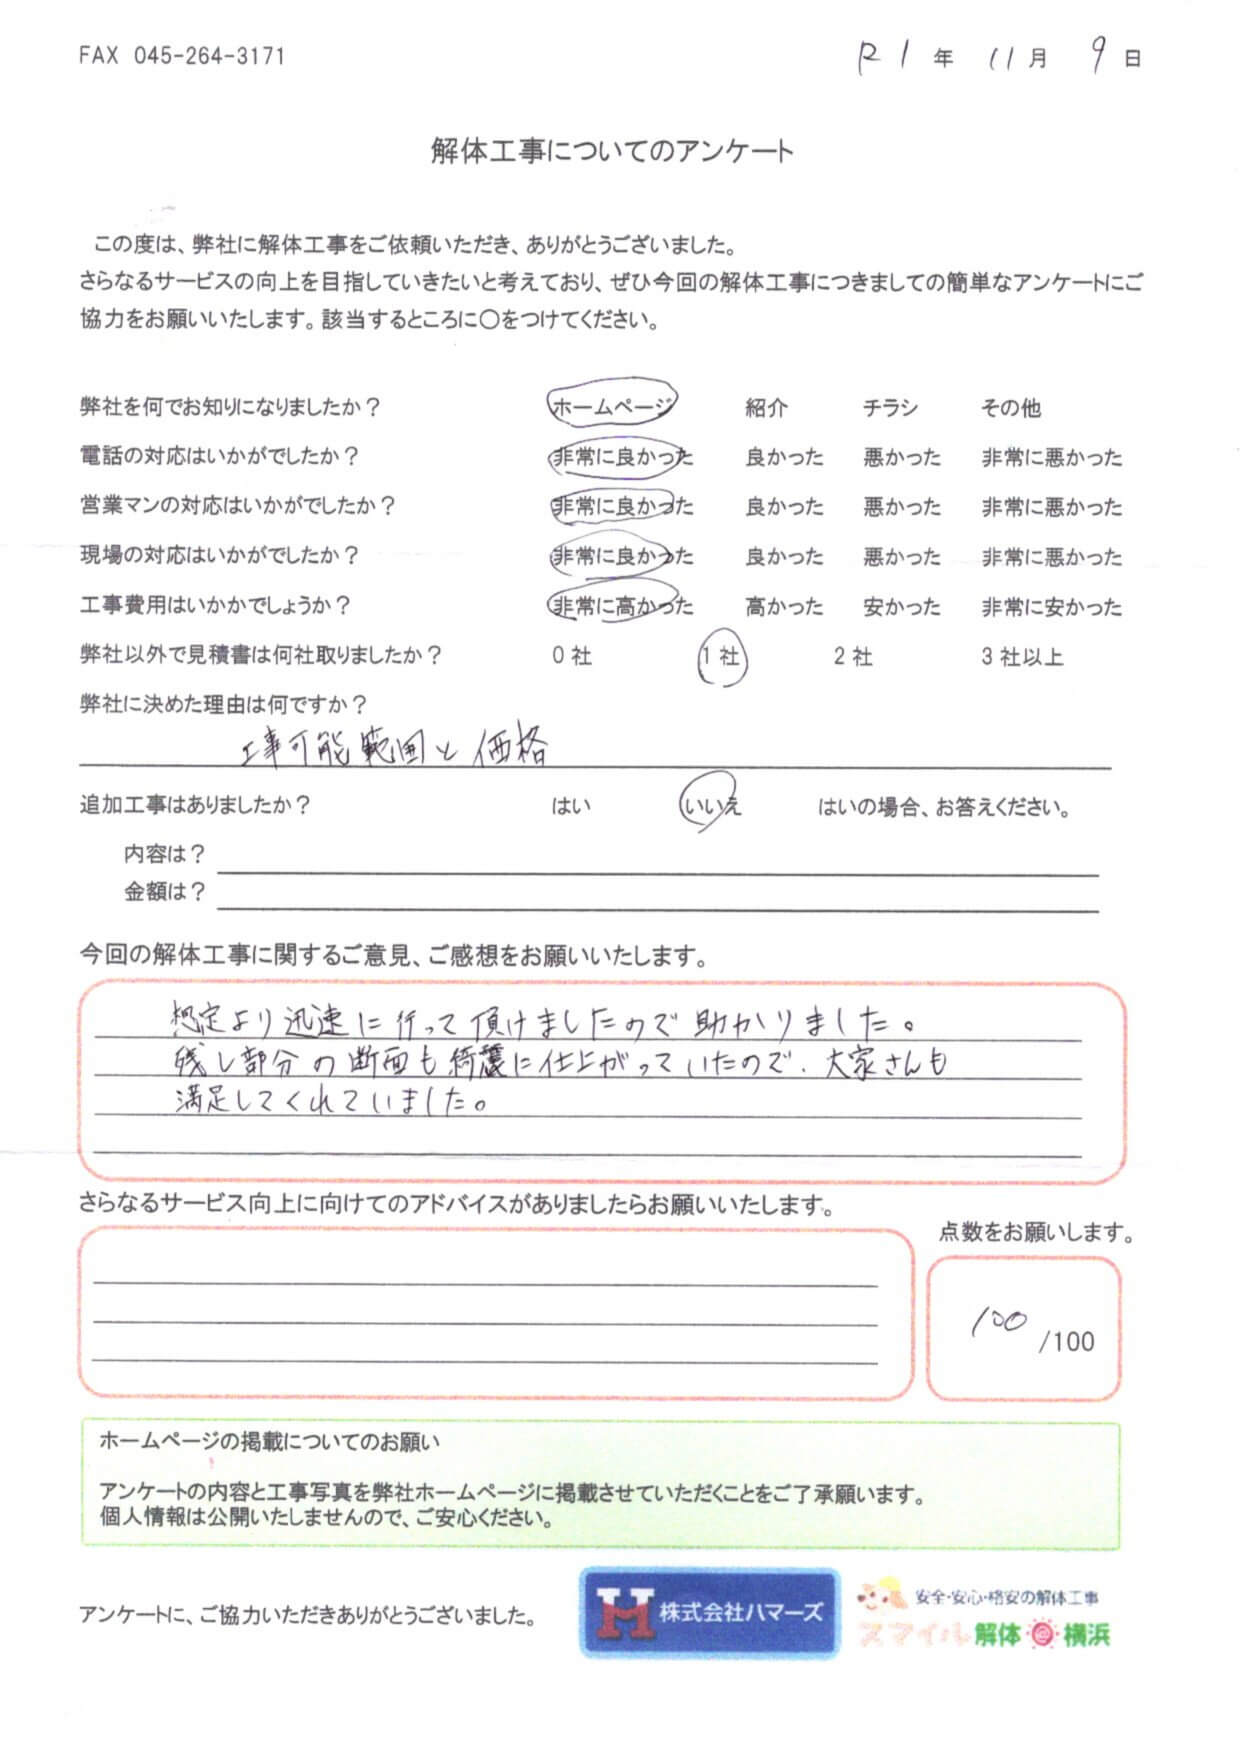 FAX 045-264-3171
R1年 11月 9日
解体工事についてのアンケート
この度は、弊社に解体工事をご依頼いただき、ありがとうございました。
さらなるサービスの向上を目指していきたいと考えており、ぜひ今回の解体工事につきましての簡単なアンケートにご
協力をお願いいたします。該当するところに○をつけてください。
弊社を何でお知りになりましたか？ ホームページ 紹介 チラシ その他
電話の対応はいかがでしたか？ 非常に良かった 良かった 悪かった 非常に悪かった
営業マンの対応はいかがでしたか？ 非常に良かった 良かった 悪かった 非常に悪かった
現場の対応はいかがでしたか？ 非常に良かった 良かった 悪かった 非常に悪かった
工事費用はいかかでしょうか？ 非常に高かった 高かった 安かった 非常に安かった
弊社以外で見積書は何社取りましたか？ 0 社 1 社 2 社 3 社以上
弊社に決めた理由は何ですか？
工事可能範囲と価格
追加工事はありましたか？ はい いいえ はいの場合、お答えください。
内容は？
金額は？
今回の解体工事に関するご意見、ご感想をお願いいたします。
想定より迅速に行って頂けましたので助かりました。
残し部分の断面も綺麗に仕上がっていたので、大家さんも
満足してくれていました。
さらなるサービス向上に向けてのアドバイスがありましたらお願いいたします。
点数をお願いします。
100 /100
ホームページの掲載についてのお願い
アンケートの内容と工事写真を弊社ホームページに掲載させていただくことをご了承願います。
個人情報は公開いたしませんので、ご安心ください。
アンケートに、ご協力いただきありがとうございました。
H 株式会社ハマーズ
安全・安心・格安の解体工事
スマイル解体@横浜